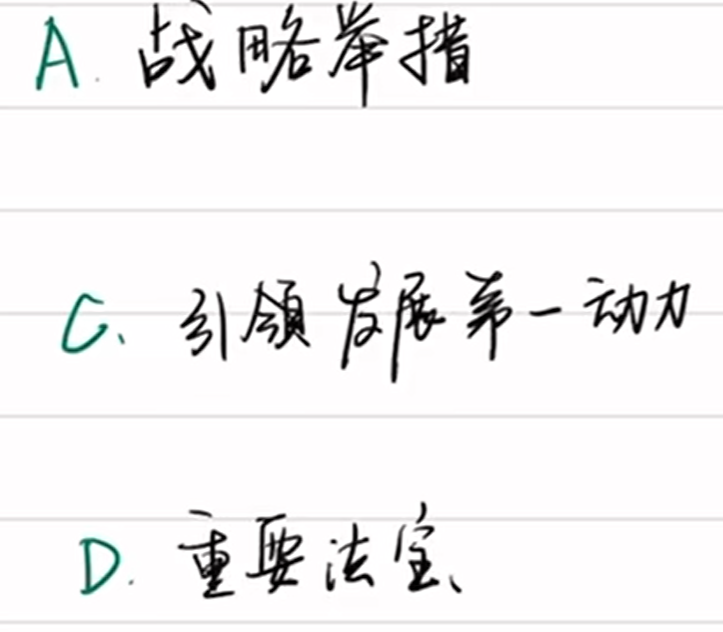 A. 战略举措
C. 引领发展第一动力
D. 重要法宝、